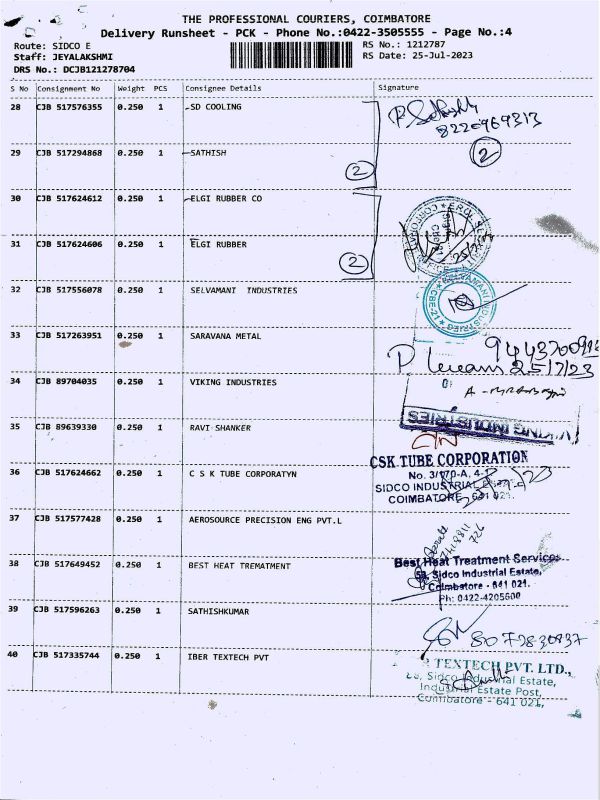 THE PROFESSIONAL COURIERS, COIMBATORE
Delivery Runsheet - PCK - Phone No.:0422-3505555 - Page No.:4
Route: SIDCO E
RS No.: 1212787
Staff: JEYALAKSHMI
RS Date: 25-Jul-2023
DRS No.: DCJB121278704
S No Consignment No Weight PCS Consignee Details Signature
28 CJB 517576355 0.250 1 SD COOLING
8220969313
2
29 CJB 517294868 0.250 1 SATHISH
2
30 CJB 517624612 0.250 1 ELGI RUBBER CO
31 CJB 517624606 0.250 1 ELGI RUBBER
2
32 CJB 517556078 0.250 1 SELVAMANI INDUSTRIES
33 CJB 517263951 0.250 1 SARAVANA METAL
25/7/23
34 CJB 89704035 1 VIKING INDUSTRIES
VIKING INDUSTRIES
35 CJB 89639330 0.250 1 RAVI SHANKER
36 CJB 517624662 0.250 1 C S K TUBE CORPORATYN
CSK TUBE CORPORATION
No. 3/170-A, 4-
SIDCO INDUSTRIAL
COIMBATORE, 641 021.
37 CJB 517577428 0.250 1 AEROSOURCE PRECISION ENG PVT.L
38 CJB 517649452 0.250 1 BEST HEAT TREMATMENT
Best Heat Treatment Services
Sidco Industrial Estate,
Coimbatore - 641 021.
Ph: 0422-4205600
39 CJB 517596263 0.250 1 SATHISHKUMAR
40 CJB 517335744 0.250 1 IBER TEXTECH PVT
TEXTECH PVT. LTD.,
Sidco Industrial Estate,
Industrial Estate Post,
Coimbatore - 641 021,